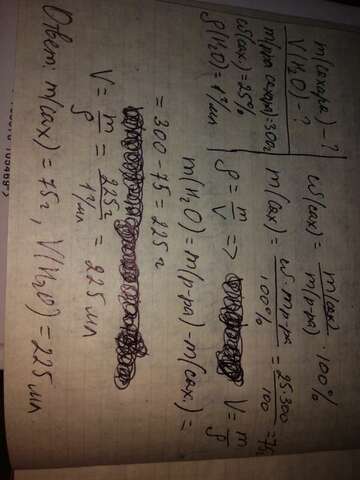 m(сахара) - ?
V(H₂O) - ?
m(р-ра сахара)=300г
ω(сах)=25%
ρ(H₂O)=1г/мл
ω(сах) = m(сах)/m(р-ра) · 100%
m(сах) = ω·mр-ра/100% = 25·300/100 = 75г
ρ = m/V => V = m/ρ
m(H₂O) = m(р-ра) - m(сах) =
= 300 - 75 = 225г
V = m/ρ = 225г/1г/мл = 225 мл
Ответ: m(сах) = 75г, V(H₂O) = 225 мл.